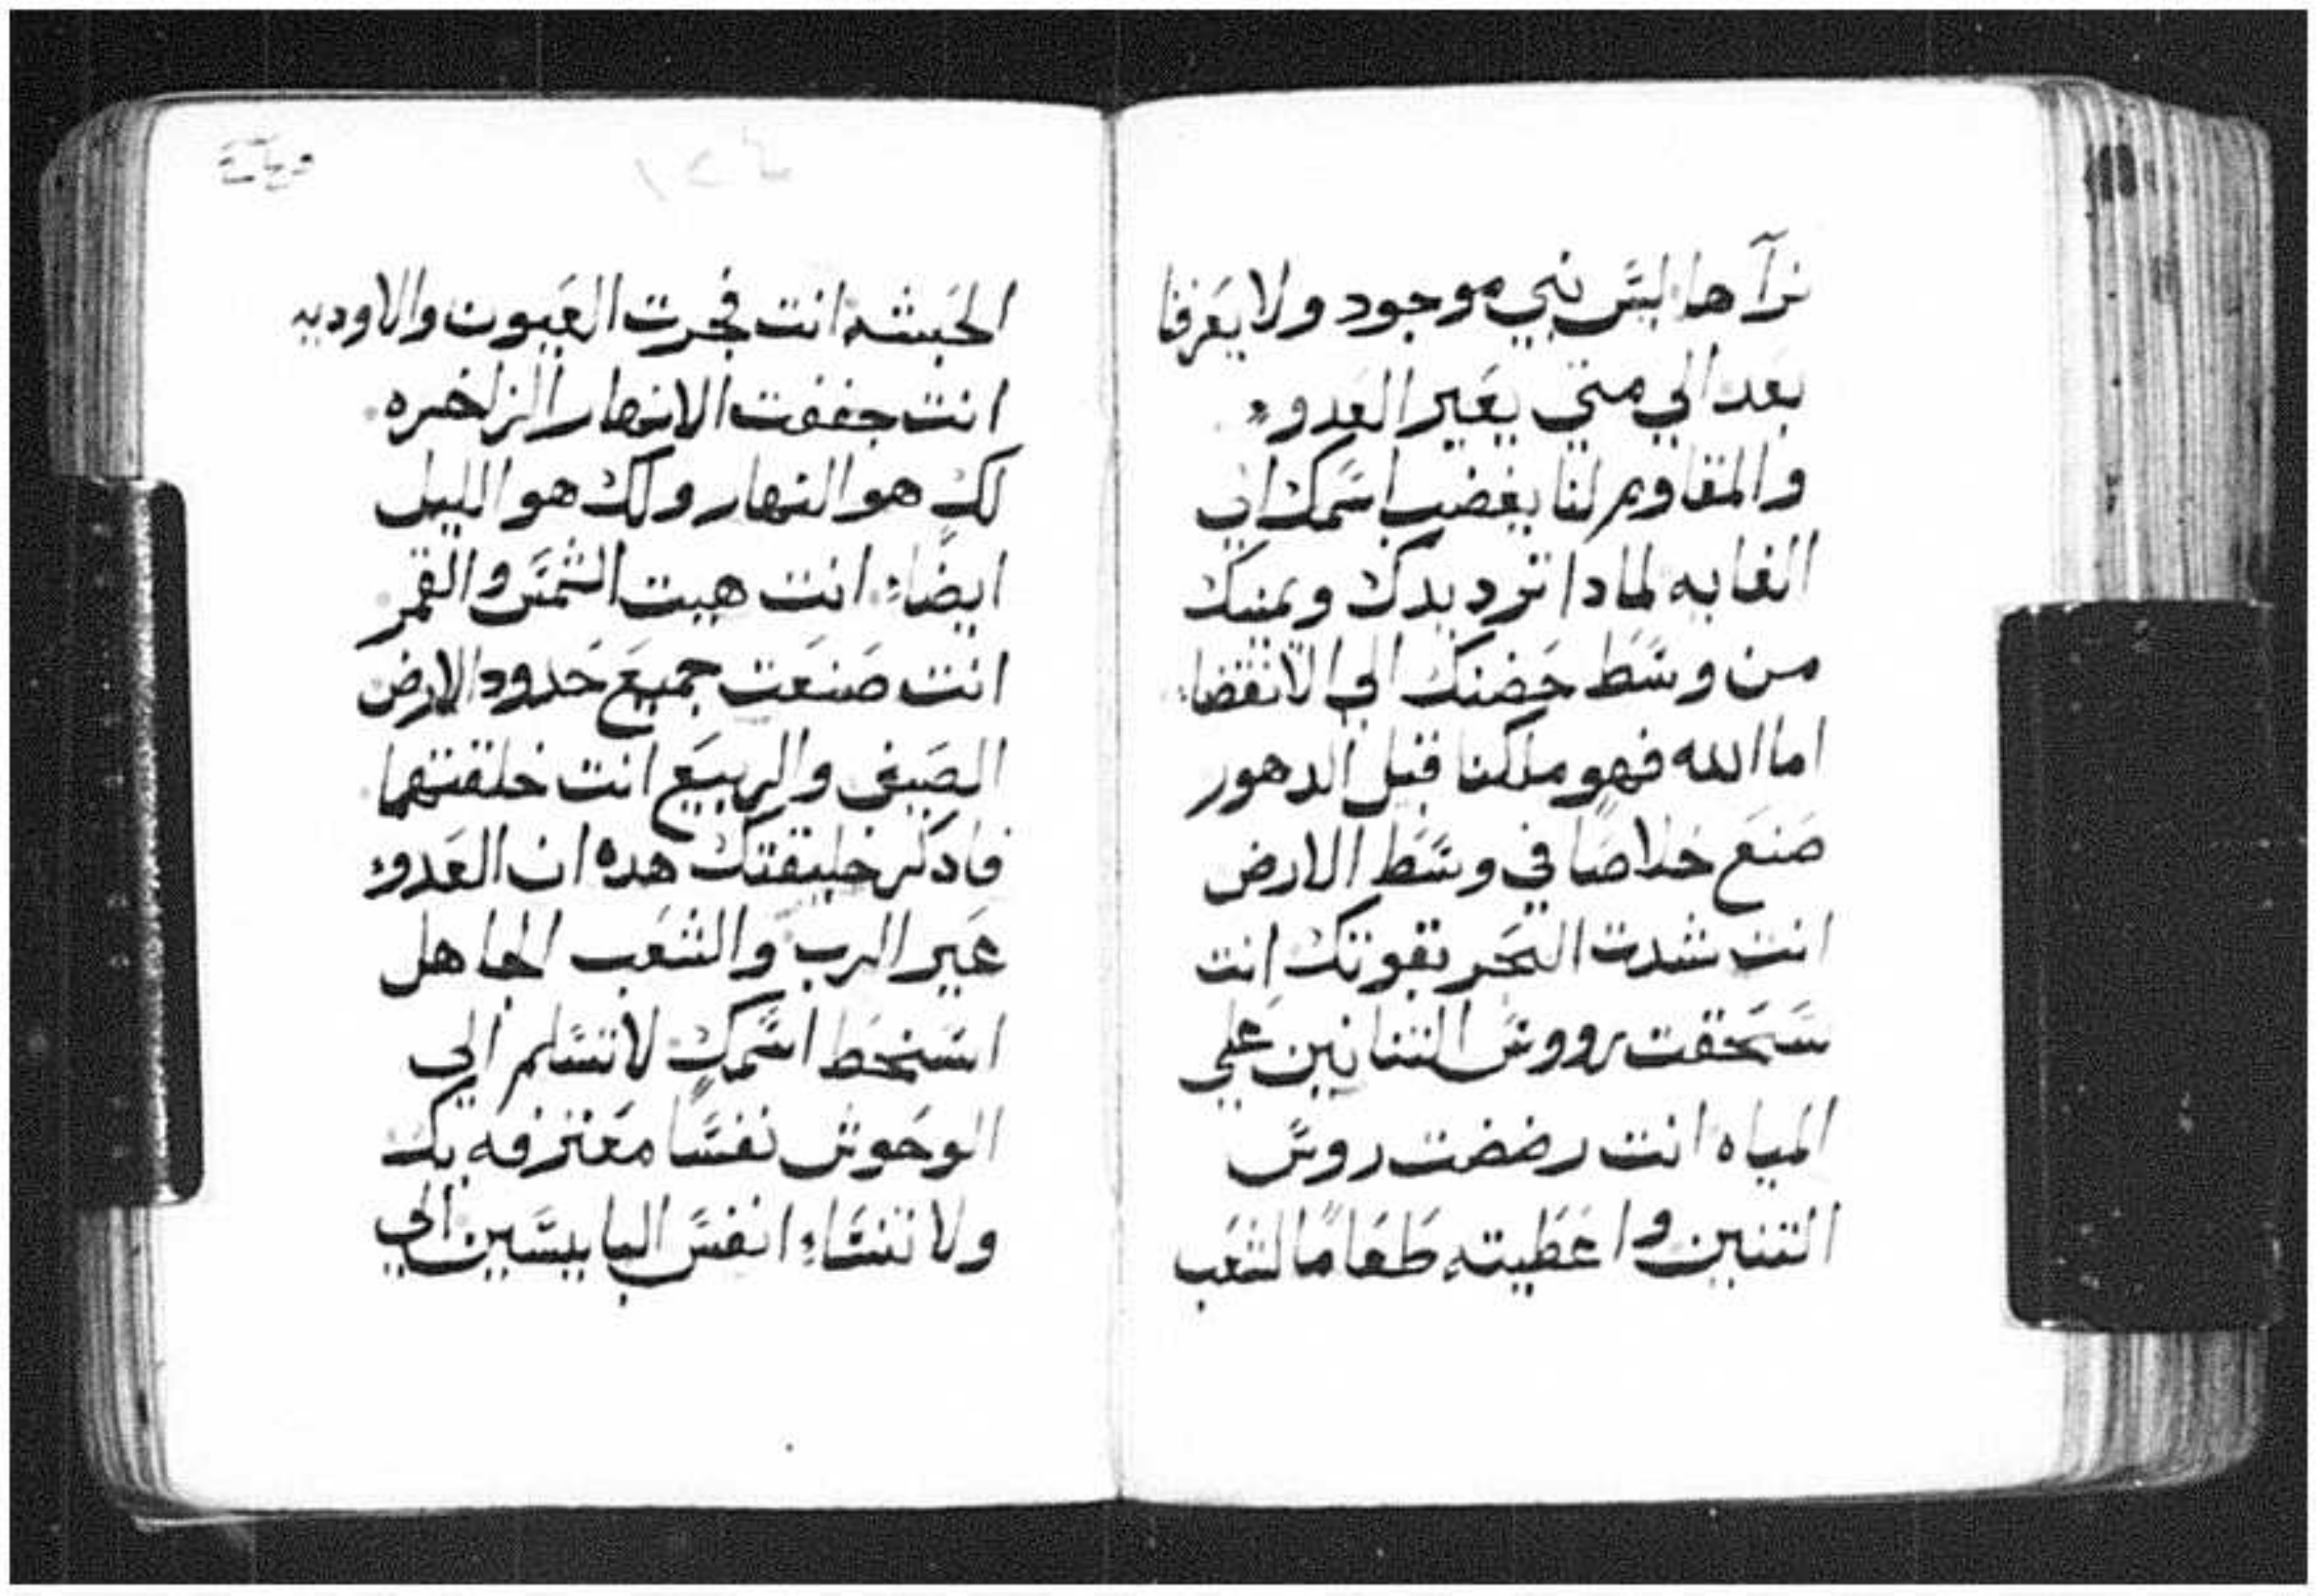 نرآها ليس نبي موجود ولا يعرفنا
بعد الي متي يعير العدو
والمقاوم لنا يغضب اسمك الي
الغايه لمادا ترد يدك ويمينك
من وسط حضنك الي الانقضاء
اما الله فهو ملكنا قبل الدهور
صنع خلاصا في وسط الارض
انت شدت البحر بقوتك انت
سحقت رووس التنانين علي
المياه انت رضضت روس
التنين واعطيته طعاما لشعب
الحبشه انت فجرت العيون والاوديه
انت جففت الانهار الزاخره
لك هو النهار ولك هو الليل
ايضاء انت هيت الشمس والقمر
انت صنعت جميع حدود الارض
الصيف والربيع انت خلقتهما
فادكر خليقتك هده ان العدو
عير الرب والشعب الجاهل
اسخط اسمك لا تسلم الي
الوحوش نفسا معترفه بك
ولا تنساء انفس البايسين الي